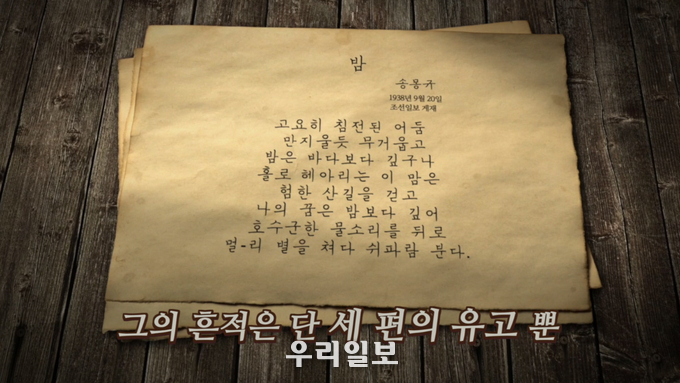 밤
송몽규
1938년 9월 20일
조선일보 게재
고요히 침전된 어둠
만지울듯 무거웁고
밤은 바다보다 깊구나
홀로 헤아리는 이 맘은
험한 산길을 걷고
나의 꿈은 밤보다 깊어
호수군한 물소리를 뒤로
멀-리 별을 쳐다 쉬파람 분다.
그의 흔적은 단 세 편의 유고 뿐
우리일보